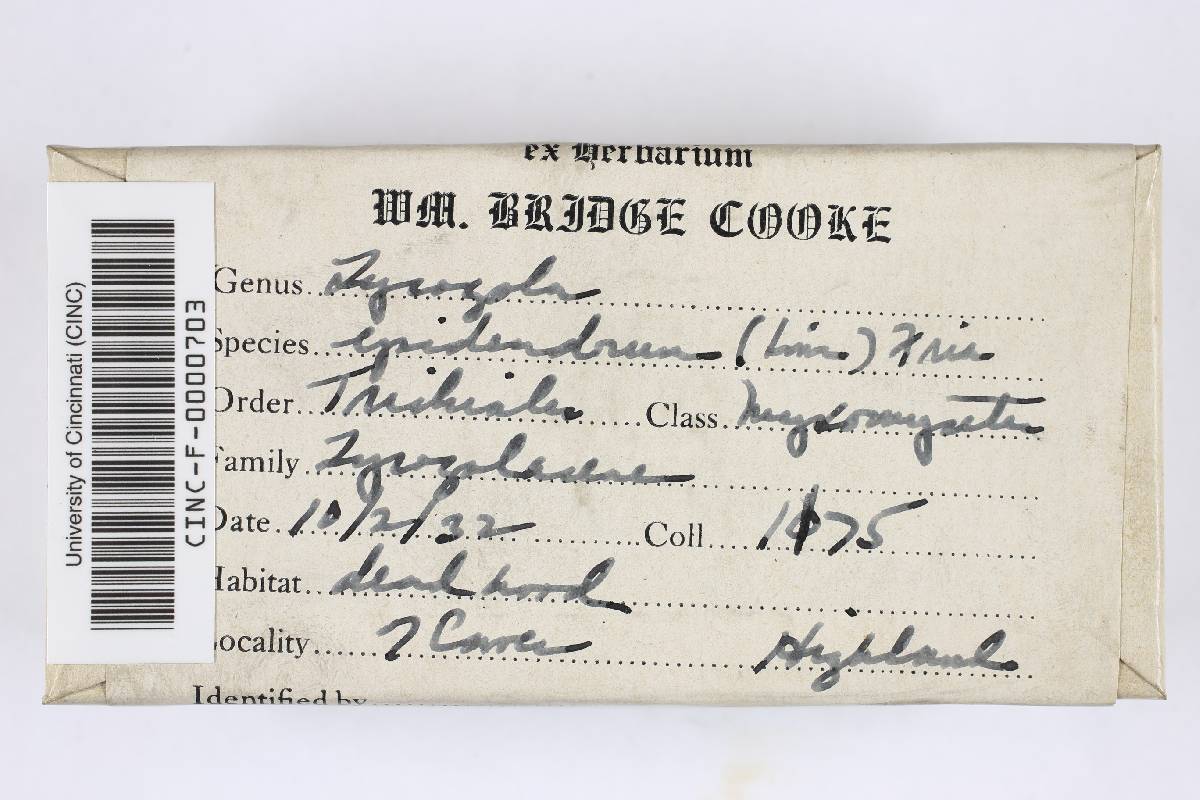 ex Herbarium
WM. BRIDGE COOKE
Genus Lycogola
Species epidendrum (Linn.) Fries
Order Trichiales Class Myxomycetes
Family Lycogolaceae
Date 10/2/32 Coll 1175
Habitat dead wood
Locality 7 Caves Highland
Identified by
University of Cincinnati (CINC)
CINC-F-0000703